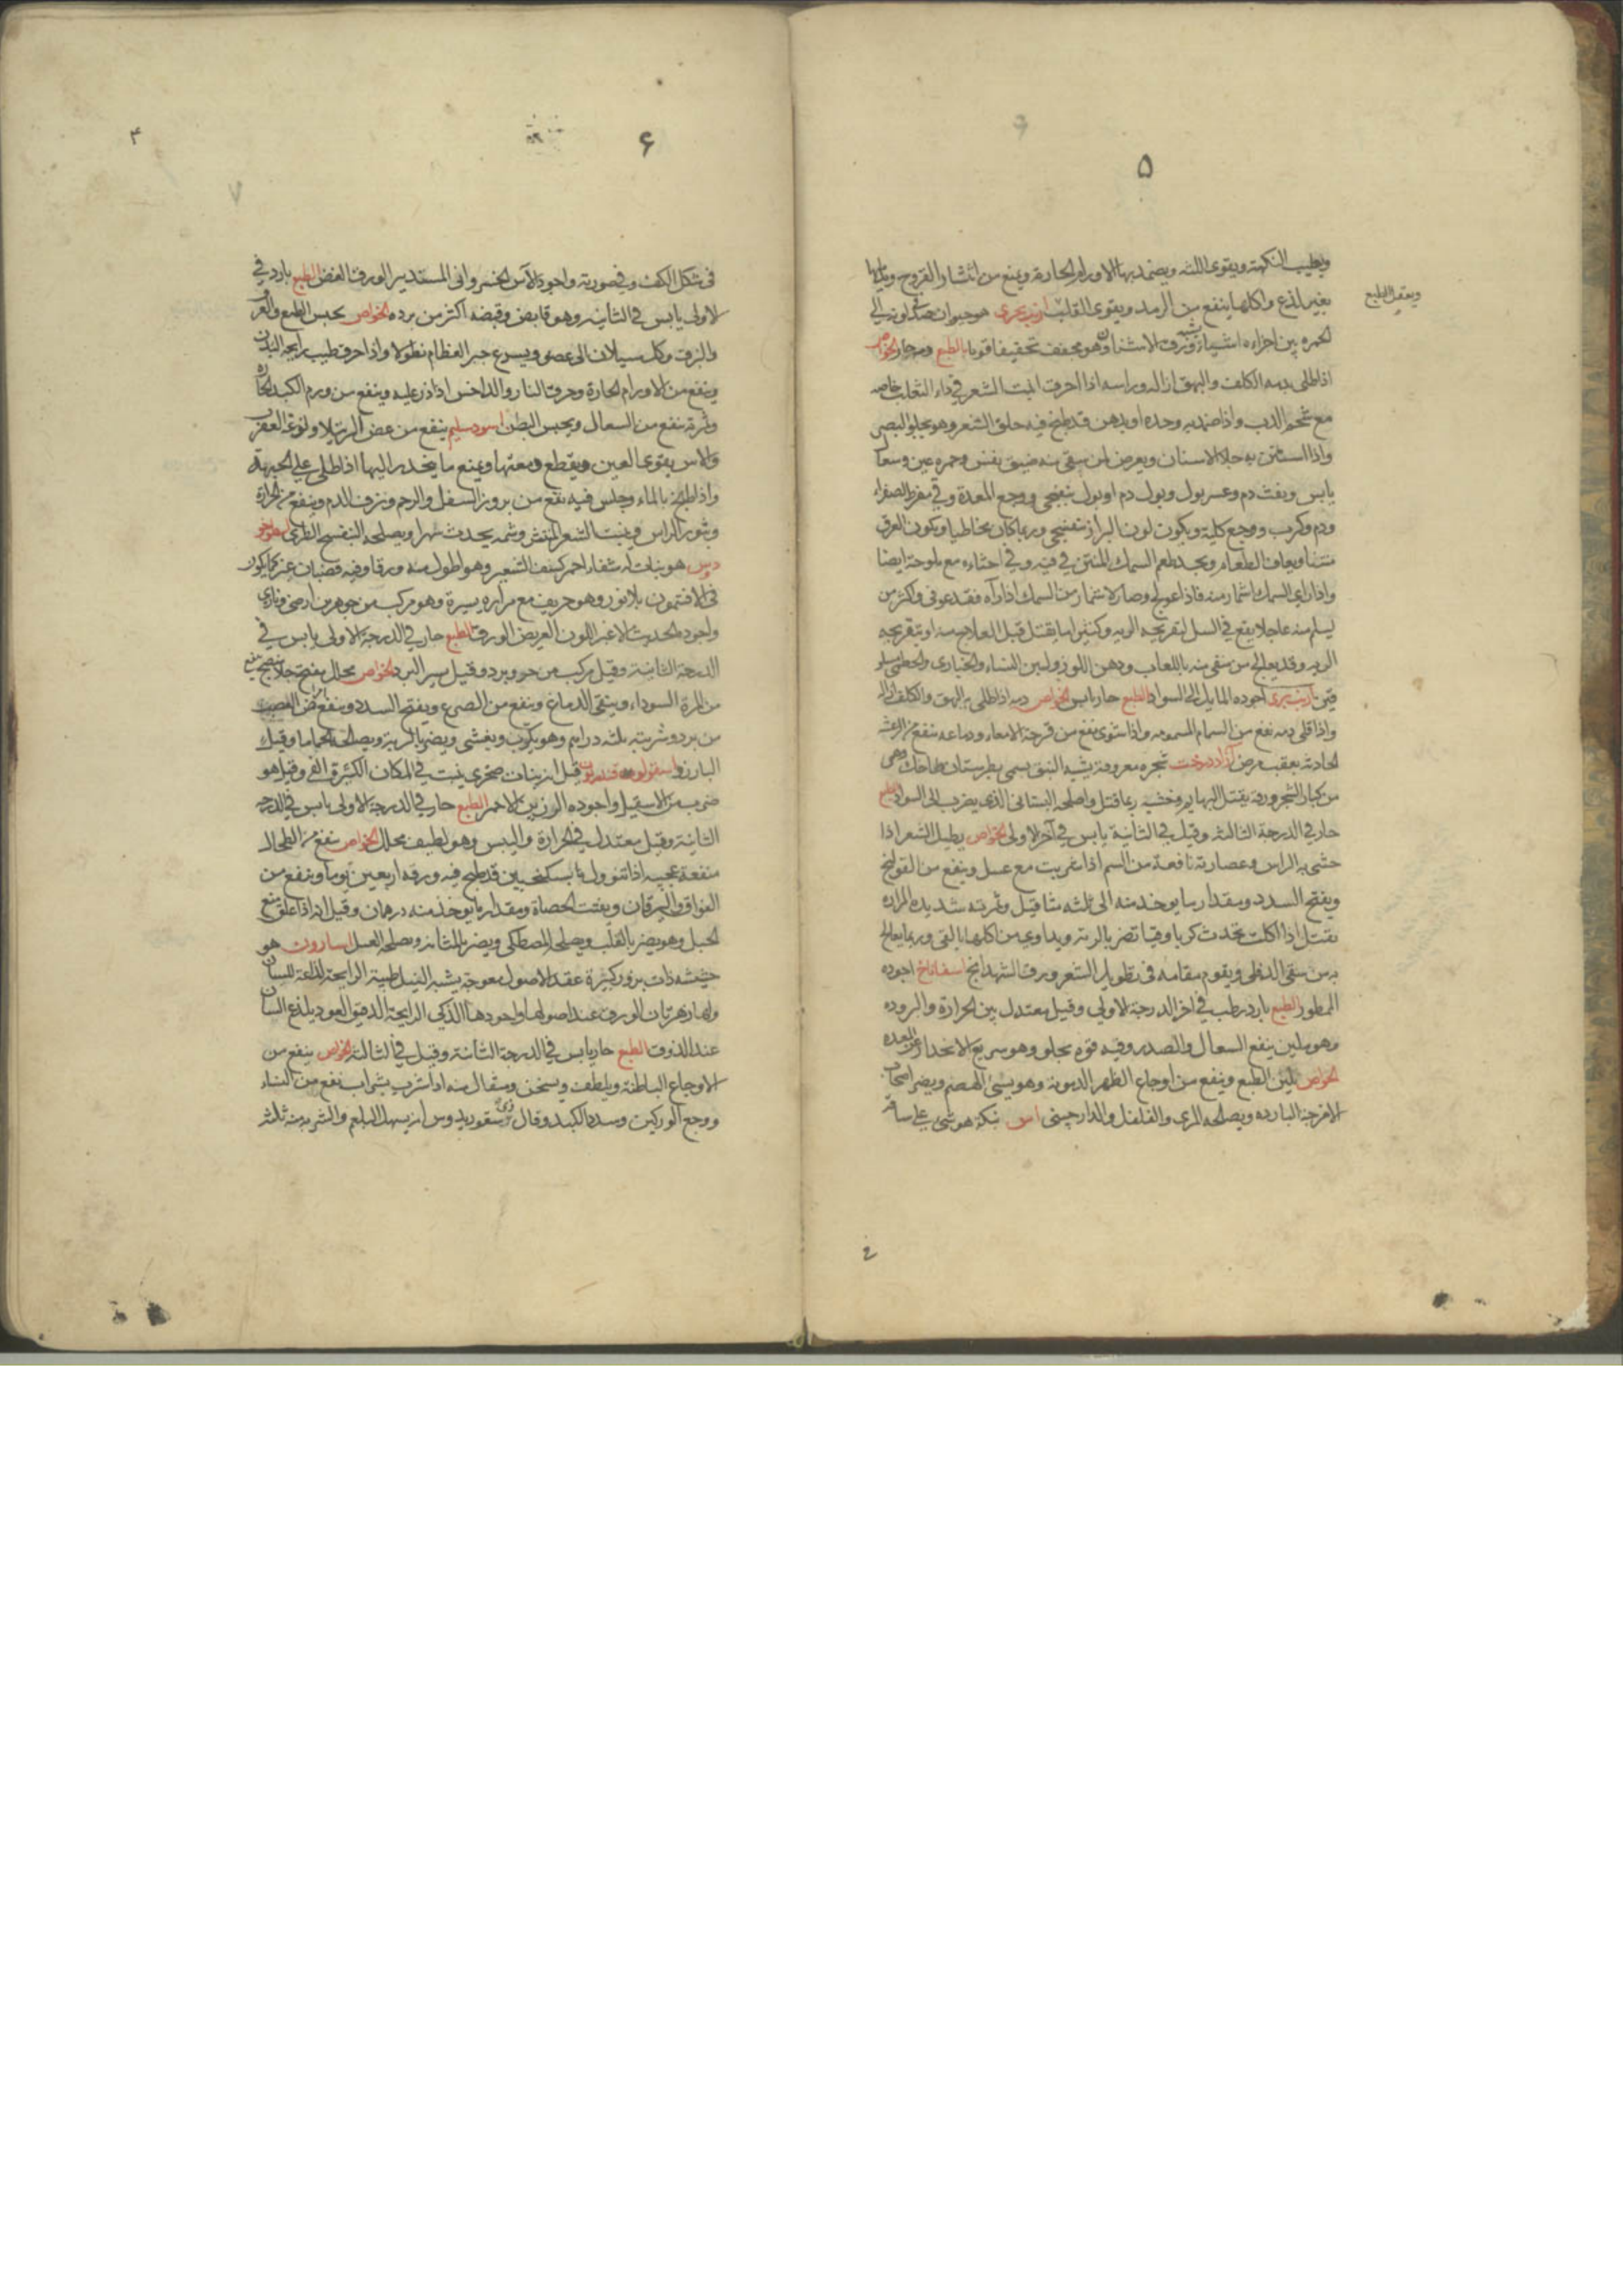 ۵
ويطيب النكهة ويقوى اللثه ويضمد بها الاورام الحارة ويمنع من انتشار القروح
ويعقل الطبع
بغير لذع واكلها ينفع من الرمد ويقوى القلب ارنب بحرى هو حيوان صدفى لونه الى
الحمره بين اجزاءه اشياء تشبه ورق الاشنان وهو مجفف تجفيفا قويا الطبع ودمه حار الخواص
اذا طلى بدمه الكلف والبهق ازاله وراسه اذا احرق انبت الشعر فى داء الثعلب خاصه
مع شحم الدب واذا ضمد به وحده او بدهن قد طبخ فيه حلق الشعر وهو يجلو البصر
واذا استن به جلا الاسنان ويعرض لمن سقى منه ضيق نفس وحمره عين وسعال
يابس ونفث دم وعسر بول وبول دم او بول بنفسجى ووجع المعدة وقى مفرط الصفراء
ودم وكرب ووجع كلية ويكون لون البراز بنفسجى وربما كان مخاطيا ويكون العرق
منتنا ويعاف الطعام ويجد طعم السمك المنتن فى فيه وفى احشاءه مع ملوحة ايضا
واذا راى السمك اشمأز منه فاذا عولج وصار لا يشمأز من السمك اذا رآه فقد عوفى واكثر من
يسلم منه عاجلا يقع فى السل لتقريحه الريه وكثيرا ما يقتل قبل العلاج منه او بتقريحه
الريه وقد يعالج من سقى منه باللعاب ودهن اللوز ولبن النساء والخبازى والخطمى
ارنب برى اجوده المايل الى السواد الطبع حار يابس الخواص دمه اذا طلى به البهق والكلف ازاله
واذا قلى دمه نفع من السهام المسمومه واذا شوى نفع من قرحة الامعاء ودماغه ينفع من الرعشه
الحادثه بعقب مرض آزاد درخت شجره معروفة يشبه النبق يسمى بطبرستان طاحك وهى
من كبار الشجر ورقه يقتل البهايم وخشبه ربما قتل واصلحه البستانى الذى يضرب الى السواد الطبع
حار فى الدرجة الثالثه وقيل فى الثانية يابس فى آخر الاولى الخواص يطيل الشعر اذا
حشى به الراس وعصارته نافعة من السم اذا شربت مع عسل وينفع من القولنج
ويفتح السدد ومقدار ما يوخذ منه الى ثلثه مثاقيل وثمرته شديده المراره
يقتل اذا اكلت تحدث كربا وقيا تضر بالريه ويداوى من اكلها بالقى وربما يعالج
به من سقى الدفلى ويقوم مقامه فى تطويل الشعر ورق الشهدانج اسفاناخ اجوده
الممطور الطبع بارد رطب فى اخر الدرجة الاولى وقيل معتدل بين الحرارة والبروده
وهو ملين ينفع السعال والصدر وفيه قوه يجلو وهو سريع الانحدار عن المعده
الخواص يلين الطبع وينفع من اوجاع الظهر الدمويه وهو يسئ الهضم ويضر اصحاب
الامزجة البارده ويصلحه المرى والفلفل والدارچينى اس بنكه هو شئ على ساقه
۶
۴
۷
فى شكل الكف وفى صورته واجود الآس الخسروانى المستدير الورق الغض الطبع بارد فى
الاولى يابس فى الثانيه وهو قابض وقبضه اكثر من برده الخواص يحبس الطبع والعرق
والنزف وكل سيلان الى عضو ويسرع جبر العظام نطولا واذا حرق طيب رايحة البدن
وينفع من الاورام الحارة وحرق النار والداخس اذا ذر عليه وينفع من ورم الكبد الحاره
وثمرته تنفع من السعال ويحبس البطن اسود سليم ينفع من عض الرتيلا ولدغ العقرب
والاس يقوى العين ويقطع دمعتها ويمنع ما يتحدر اليها اذا طلى على الجبهة
واذا طبخ بالماء وجلس فيه نفع من بروز السفل والرحم ونزف الدم وينفع من الحرارة
وبثور الراس وينبت الشعر المنتثر وشمه يحدث سهرا ويصلحه البنفسج الطرى اسطوخو
دس هو نبات له شفاء احمر كسنف الشعير وهو اطول منه ورقا وفيه قضبان غبر كما يكون
فى الافتيمون بلا نور وهو حريف مع مراره يسيرة وهو مركب من جوهرين ارضى ونارى
واجوده الحديث الاغبر اللون العريض الورق الطبع حار فى الدرجة الاولى يابس فى
الدرجة الثانية وقيل مركب من حر وبرد وقيل يسير البرد الخواص محلل مفتح جلا
من المرة السوداء وينقى الدماغ وينفع من الصرع ويفتح السدد وينفع العصب
من برد وشربته ثلثه دراهم وهو يكرب ويغشى ويضر بالرية ويصلحه الحماما وقيل
البارزد اسقولوقندريون قيل انه نبات صخرى ينبت فى المكان الكثيرة الفى وقيل هو
ضرب من الاسقيل واجوده الرزين الاحمر الطبع حار فى الدرجة الاولى يابس فى الدرجه
الثانية وقيل معتدل فى الحرارة واليبس وهو لطيف محلل الخواص ينفع من الطحال
منفعة عجيبه اذا تنوول بسكنجبين قد طبخ فيه ورقه اربعين يوما وينفع من
الفواق واليرقان ويفتت الحصاة ومقدار ما يوخذ منه درهمان وقيل انه اذا علق منع
الحبل وهو يضر بالقلب ويصلحه المصطكى ويضر بالمثانه ويصلحه العسل اسارون هو
حشيشه ذات بزور كثيرة عقد الاصول معوجة يشبه النيل طيبة الرايحة لذاعة للسان
ولها زهر بين الورق عند اصولها واجودها الذكى الرايحة الدقيق العود يلذع اللسان
عند الذوق الطبع حار يابس فى الدرجة الثانية وقيل فى الثالثة الخواص ينفع من
الاوجاع الباطنة ويلطف ويسخن ومثقال منه اذا شرب بشراب نفع من النساء
ووجع الوركين وسدد الكبد وقال ديسقوريدوس انه يسهل البلغم والشربة منه ثلث